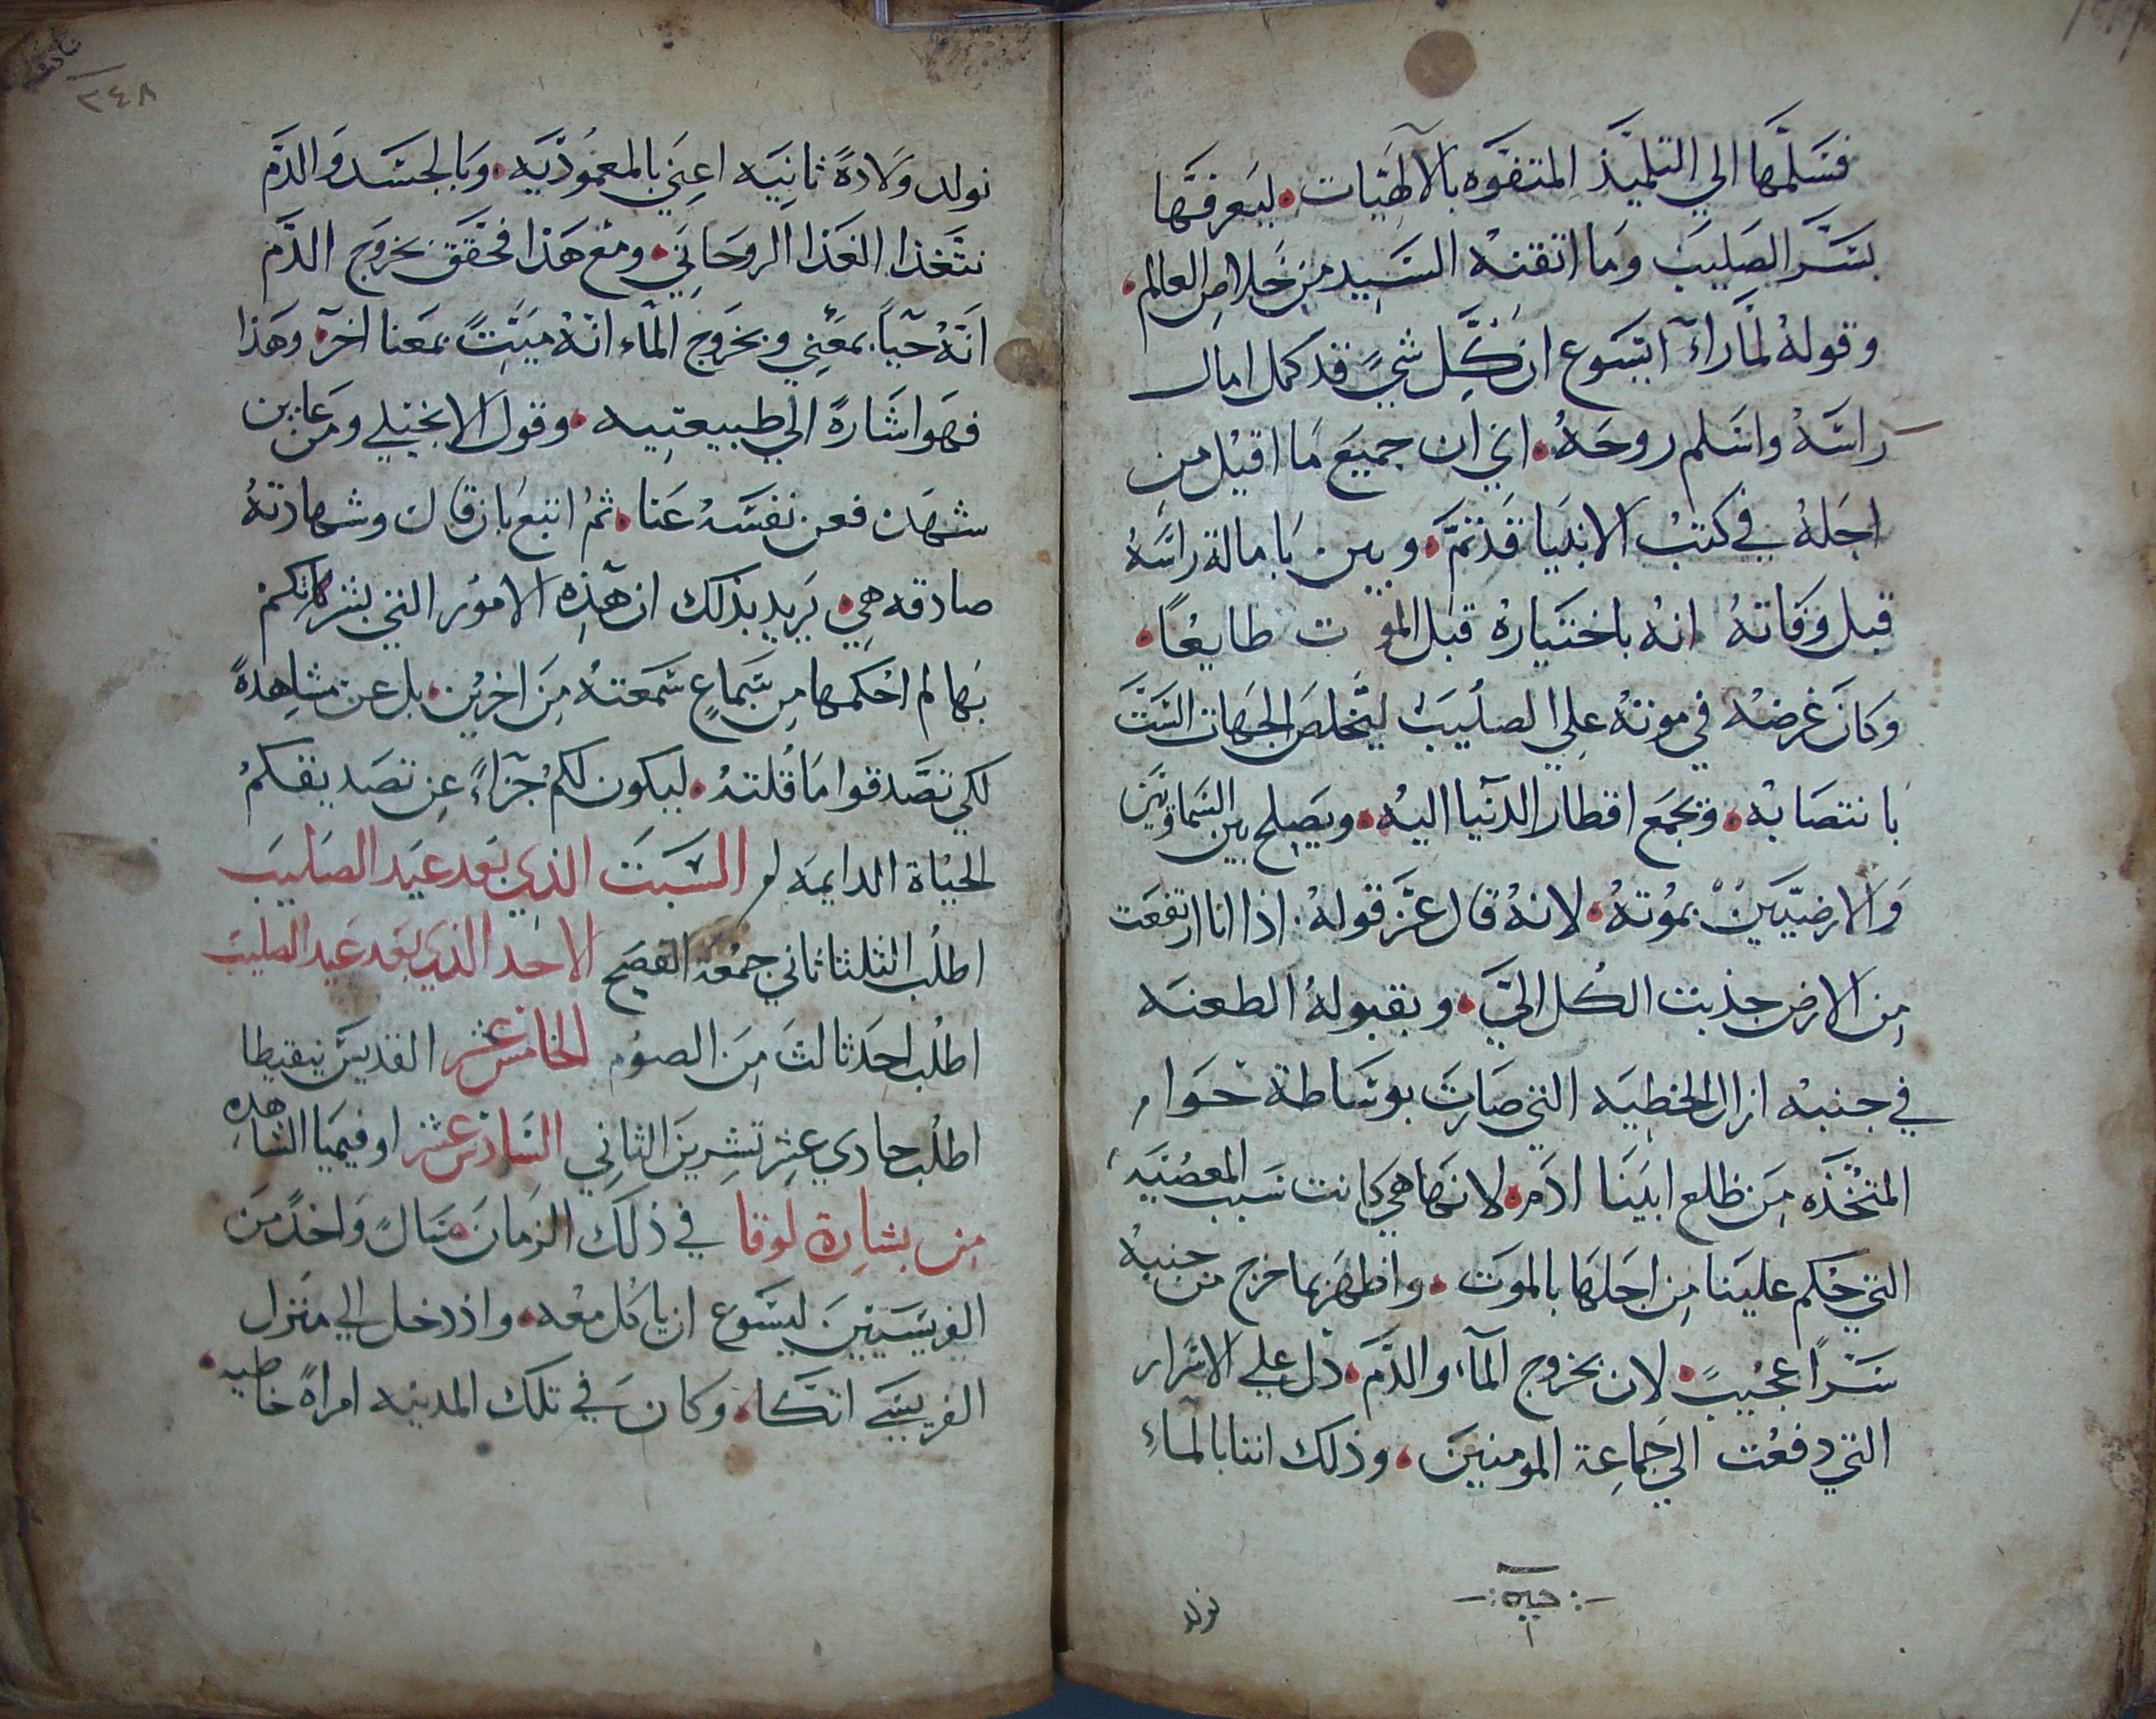 فسَلَّمها الي التلميذ المتفوه بالالهيات ليعرفها
بسَّر الصَليبَ وَما اتقنهُ السَيد من خلاص العالم
وقولهُ لمَّا رآءَ ايسَوع ان كل شيً قد كمل امال
راسَهُ واسَلم روحَهُ اي ان جميعَ ما اقيل من
اجَلهُ في كتبْ الانبَيا قدتمَّ وبين بامالة راسَهُ
قبل وَفاتهُ انهُ باختيارهُ قبل الموت طايعًا
وَكانَ غرضهُ في موتهُ علي الصليَبَ ليَخلصَ الجَهات السَتَ
بانتصابهُ وَيجمَع اقطار الدنيا اليهُ ويَصلح بين السَماويَين
وَالارضيَّيَن بموتهُ لانهُ قال عَزَّ قولهُ اذا انا ارتفعَت
من الارض جذبت الكُل اليَّ وبقبولهُ الطعنَه
في جنبهْ ازال الخطيَه التي صَارتَ بوسَاطة حَوا
المتخْذَه مِنَ ظلع ابَينَا ادَم لانهَا هي كانت سَبب المعصَيه
التي حُكم علينَا من اجَلهَا بالموت واظهَر بما خرج من جنبهُ
سَرًا عجيبً لان بخروج المآء والدَم دَل علي الاسَرار
التي دفعُت الي جَماعِة المومنينَ وذلك اننا بالماءِ
نولد
٢٤٨
نولد وَلادةً ثانيَه اعني بالمعموديَه وَبالجسَد وَالدَّم
نتَغذا الغَذا الروحَاني ومَع هَذا فحقَق بخروجَ الدَّم
انَهُ حَياً بمعَني وبخروج المآء انَهُ ميَتً بمعَنا اخر وهَذا
فهَو اشَارةً الي طبيعتيه وقول الانجيلي ومَن عَاين
شهَد فعن نفسَهُ عَنا ثمُ اتبعَ بان قال وشهادتهُ
صادقه هي يَريد بذلك ان هَذه الامور التي بشرتكم
بهَا لم احُكمها من سَماعٍ سَمعتهُ مِنَ اخريْن بل عن مشاهدةً
لكي تصَّدقوا مَا قُلتهُ ليكون لكمُ جَزآءً عِن تصَديقكمُ
الحيَاة الدايمَه السَبتَ الذي بَعد عَيد الصَليبَ
اطلُب الثلثا ثاني جمعُة الفصَح الاحَد الذي بعَد عَيد الصَليبَ
اطلُب احدَ ثالثَ مِنَ الصوُم الخامسَ عَشر القديسَ نيقيطا
اطلُب حادي عشر تشرينَ الثاني السَادسَ عَشر اوفيميا الشاهده
من بشارة لوقا في ذلكَ الزمَانَ سَالً وَاحَدً مَن
الفريسَيينَ ليسَوع ان ياكُل معُه واذ دخل الي منزل
الفريسَي اتكا وكانَ في تلك المدينه امراةً خاطيه